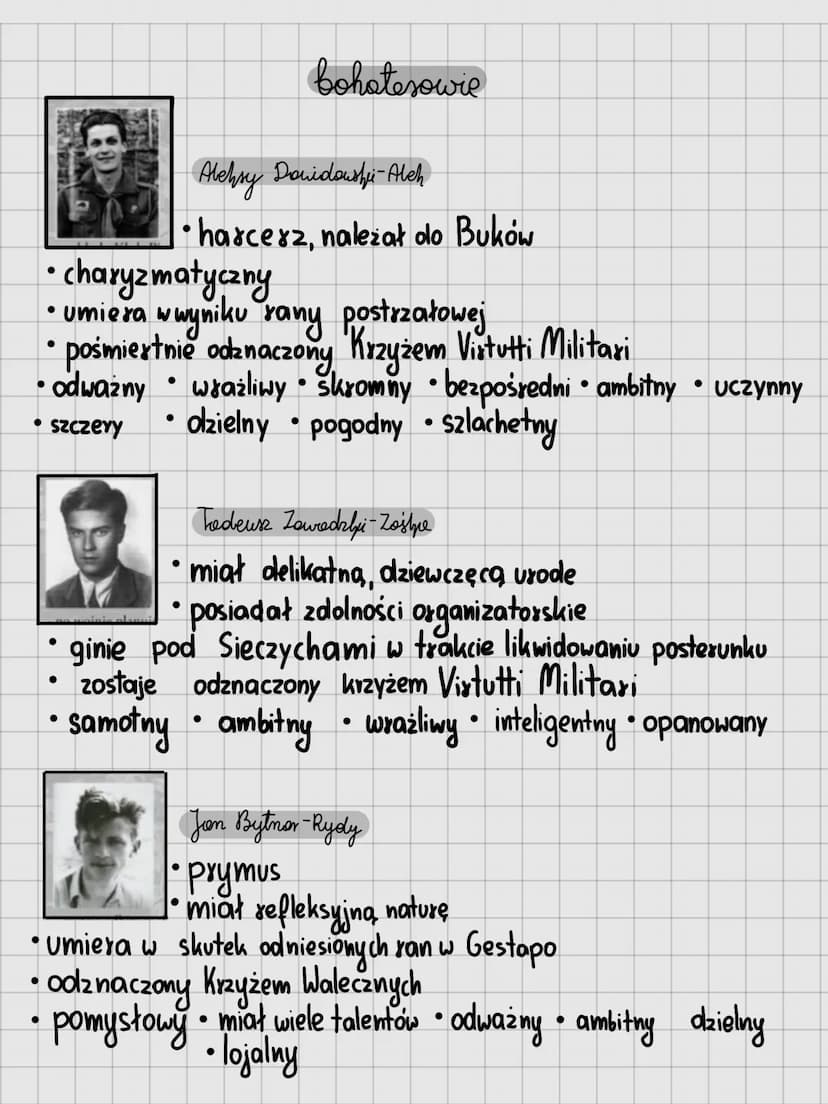 bohaterowie
Aleksy Dawidowski-Alek
• harcerz, należał do Buków
• charyzmatyczny
• umiera w wyniku rany postrzałowej
• pośmiertnie odznaczony Krzyżem Virtutti Militari
• odważny • wrażliwy • skromny • bezpośredni • ambitny • uczynny
• szczery • dzielny • pogodny • szlachetny
Tadeusz Zawadzki-Zośka
• miał delikatną, dziewczęcą urode
• posiadał zdolności organizatorskie
• ginie pod Sieczychami w trakcie likwidowaniu posterunku
• zostaje odznaczony krzyżem Virtutti Militari
• samotny • ambitny • wrażliwy • inteligentny • opanowany
Jan Bytnar-Rydy
• prymus
• miał refleksyjną naturę
• umiera w skutek odniesionych ran w Gestapo
• odznaczony Krzyżem Walecznych
• pomysłowy • miał wiele talentów • odważny • ambitny dzielny
• lojalny